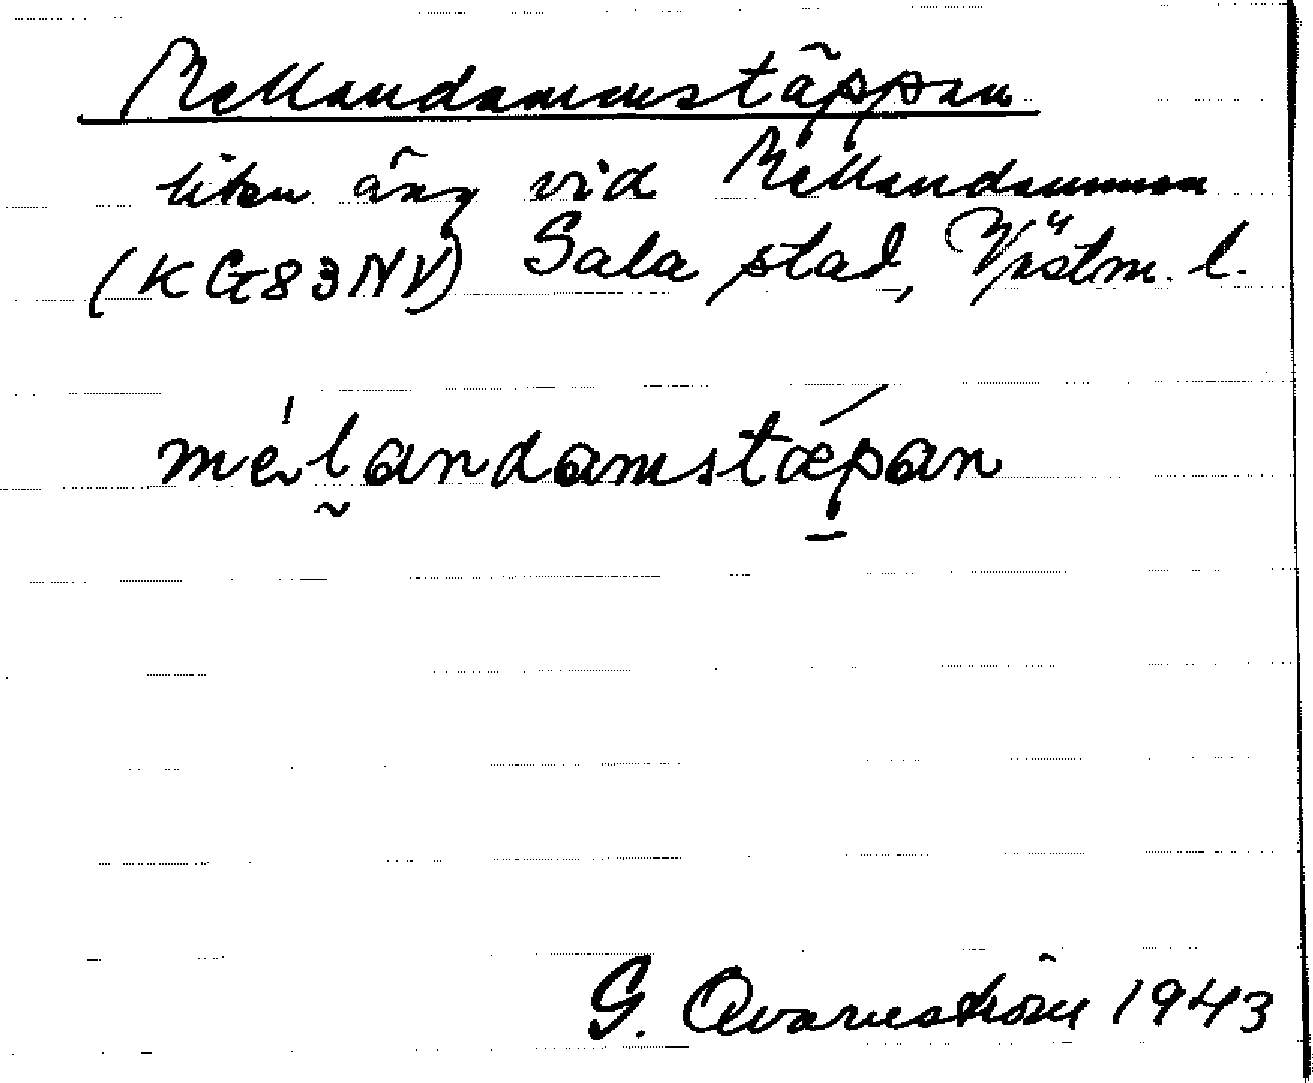 Mellandammstäppan
liten äng vid Mellandammen
(KG83NV) Sala stad, Västm. l.
mélandamstæpan
G. Qvarnström 1943